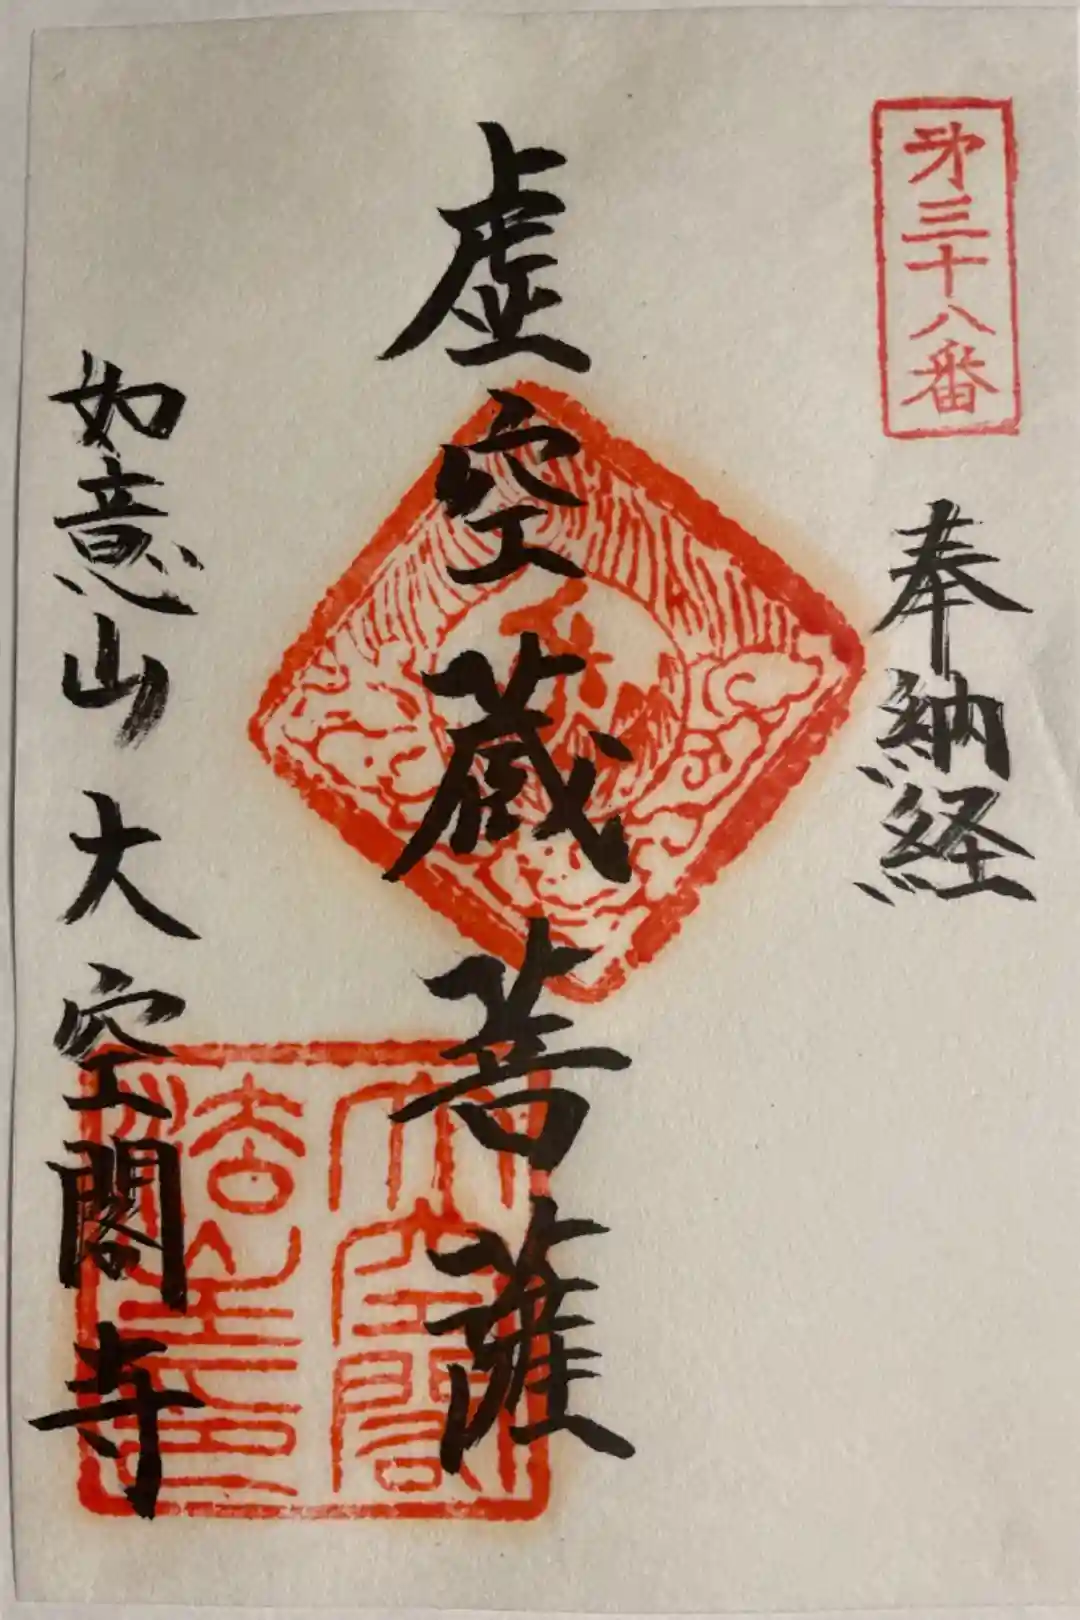 第三十八番
奉納経
虚空蔵菩薩
如意山 大空閣寺